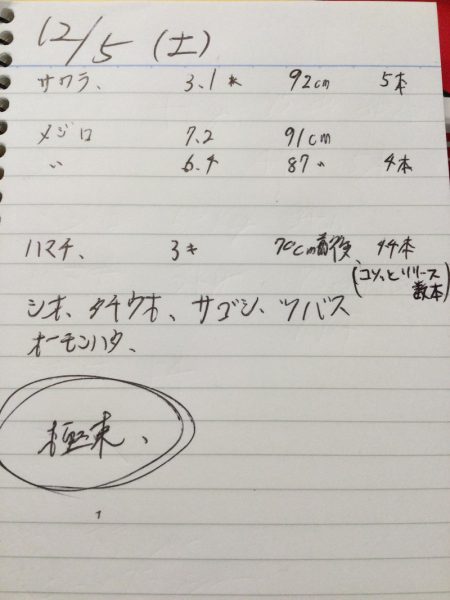 12/5 (土)
サワラ、 3.1キ 92cm 5本
メジロ 7.2 91cm
〃 6.4 87〃 4本
ハマチ、 3キ 70cm前後、 44本
(コソっとリリース
数本)
シオ、タチウオ、サゴシ、ツバス
オーモンハタ、
極東、